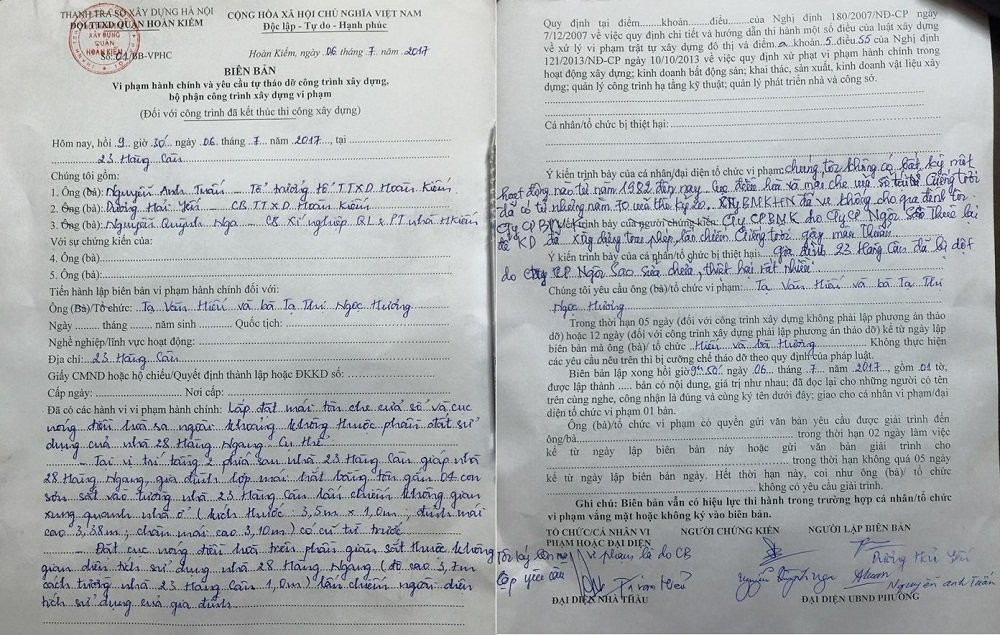 THANH TRA SỞ XÂY DỰNG HÀ NỘI
ĐỘI TTXD QUẬN HOÀN KIẾM
Số: 01/BB-VPHC
CỘNG HÒA XÃ HỘI CHỦ NGHĨA VIỆT NAM
Độc lập - Tự do - Hạnh phúc
Hoàn Kiếm, ngày 06 tháng 7 năm 2017
BIÊN BẢN
Vi phạm hành chính và yêu cầu tự tháo dỡ công trình xây dựng,
bộ phận công trình xây dựng vi phạm
(Đối với công trình đã kết thúc thi công xây dựng)
Hôm nay, hồi 9 giờ 30 ngày 06 tháng 7 năm 2017, tại
23 Hàng Cân
Chúng tôi gồm:
1. Ông (bà): Nguyễn Anh Tuấn - Tổ trưởng tổ TTXD Hoàn Kiếm
2. Ông (bà): Dương Hải Yến - CB TTXD Hoàn Kiếm
3. Ông (bà): Nguyễn Quỳnh Nga - CB Xí nghiệp QL & PT nhà HKiếm
Với sự chứng kiến của:
4. Ông (bà)
5. Ông (bà):
Tiến hành lập biên bản vi phạm hành chính đối với:
Ông (Bà)/Tổ chức: Tạ Văn Hiếu và bà Tạ Thị Ngọc Hương
Ngày ...... tháng ...... năm sinh ...... Quốc tịch:
Nghề nghiệp/Lĩnh vực hoạt động:
Địa chỉ: 23 Hàng Cân
Giấy CMND hoặc hộ chiếu/Quyết định thành lập hoặc ĐKKD số:
Cấp ngày: Nơi cấp:
Đã có các hành vi vi phạm hành chính: Lắp đặt mái tôn che cửa sổ và cục
nóng điều hoà ra ngoài khoảng không thuộc phần đất sử
dụng của nhà 28 Hàng Ngang. Cụ thể:
- Tại vị trí tầng 2 phía sau nhà 23 Hàng Cân giáp nhà
28 Hàng Ngang, gia đình lợp mái hắt bằng tôn gắn 04 con
sơn sắt vào tường nhà 23 Hàng Cân lấn chiếm không gian
xung quanh nhà ở (kích thước: 3,5m x 1,0m, đỉnh mái
cao 3,38m, chân mái cao 3,10m) có cũ từ trước
- Đặt cục nóng điều hoà trên phần giàn sắt thuộc không
gian diện tích sử dụng nhà 28 Hàng Ngang (độ cao 3,7m
cách tường nhà 23 Hàng Cân 1,0m) lấn chiếm ngoài diện
tích sử dụng của gia đình
Quy định tại điểm......khoản......điều......của Nghị định 180/2007/NĐ-CP ngày
7/12/2007 về việc quy định chi tiết và hướng dẫn thi hành một số điều của luật xây dựng
về xử lý vi phạm trật tự xây dựng đô thị và điểm a khoản 5 điều 55 của Nghị định
121/2013/NĐ-CP ngày 10/10/2013 về việc quy định xử phạt vi phạm hành chính trong
hoạt động xây dựng; kinh doanh bất động sản; khai thác, sản xuất, kinh doanh vật liệu xây
dựng; quản lý công trình hạ tầng kỹ thuật; quản lý phát triển nhà và công sở.
Cá nhân/tổ chức bị thiệt hại:
Ý kiến trình bày của cá nhân/đại diện tổ chức vi phạm: chúng tôi không có bất kỳ một
hoạt động nào từ năm 1982 đến nay. cục điều hoà và mái che cửa sổ Giếng trời
đã có từ những năm 70 của thế kỷ 20. và không cho gia đình tôi
Ý kiến trình bày của người chứng kiến: Cty CPBMK cho Cty CP Ngôi Sao Thuê lại
để KD đã xây dựng trái phép, lấn chiếm Giếng trời gây mâu thuẫn.
Ý kiến trình bày của cá nhân/tổ chức bị thiệt hại: Gia đình 23 Hàng Cân đã bị dột
do Cty CP Ngôi Sao sửa chữa, thiệt hại rất nhiều
Chúng tôi yêu cầu ông (bà)/tổ chức vi phạm: Tạ Văn Hiếu và bà Tạ Thị
Ngọc Hương
Trong thời hạn 05 ngày (đối với công trình xây dựng không phải lập phương án tháo
dỡ) hoặc 12 ngày (đối với công trình xây dựng phải lập phương án tháo dỡ) kể từ ngày lập
biên bản mà ông (bà)/ tổ chức Hiếu và bà Hương Không thực hiện
các yêu cầu nêu trên thì bị cưỡng chế tháo dỡ theo quy định của pháp luật.
Biên bản lập xong hồi giờ 9h 50' ngày 06 tháng 7 năm 2017, gồm 01 tờ,
được lập thành ...... bản có nội dung, giá trị như nhau; đã đọc lại cho những người có tên
trên cùng nghe, công nhận là đúng và cùng ký tên dưới đây; giao cho cá nhân vi phạm/đại
diện tổ chức vi phạm 01 bản.
Cá nhân/tổ chức vi phạm có quyền gửi văn bản yêu cầu được giải trình đến
ông/bà...... trong thời hạn 02 ngày làm việc
kể từ ngày lập biên bản này hoặc gửi văn bản giải trình cho
...... trong thời hạn không quá 05 ngày
kể từ ngày lập biên bản này. Hết thời hạn này, coi như ông (bà)/ tổ chức
...... không có yêu cầu giải trình.
Ghi chú: Biên bản vẫn có hiệu lực thi hành trong trường hợp cá nhân/tổ chức
vi phạm vắng mặt hoặc không ký vào biên bản.
TỔ CHỨC/CÁ NHÂN VI
PHẠM HOẶC ĐẠI DIỆN
NGƯỜI CHỨNG KIẾN
NGƯỜI LẬP BIÊN BẢN
vi phạm là do CB
lập yêu cầu
Dương Hải Yến
Nguyễn Quỳnh Nga
Nguyễn Anh Tuấn
ĐẠI DIỆN NHÀ THẦU
ĐẠI DIỆN UBND PHƯỜNG